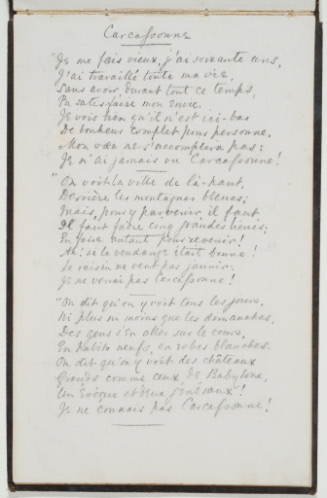 Carcassonne
"Je me fais vieux, j'ai soixante ans,
J'ai travaillé toute ma vie,
Sans avoir, durant tout ce temps,
Pu satisfaire mon envie.
Je vois bien qu'il n'est ici-bas
De bonheur complet pour personne.
Mon vœu ne s'accomplira pas:
Je n'ai jamais vu Carcassonne!
"On voit la ville de là-haut,
Derrière les montagnes bleues;
Mais, pour y parvenir, il faut,
Il faut faire cinq grandes lieues;
En faire autant pour revenir!
Ah! si la vendange était bonne!
Le raisin ne veut pas jaunir.
Je ne verrai pas Carcassonne!
"On dit qu'on y voit tous les jours,
Ni plus ni moins que les dimanches,
Des gens s'en aller sur le cours,
En habits neufs, en robes blanches.
On dit qu'on y voit des châteaux
Grands comme ceux de Babylone,
Un Évêque et deux généraux!
Je ne connais pas Carcassonne!